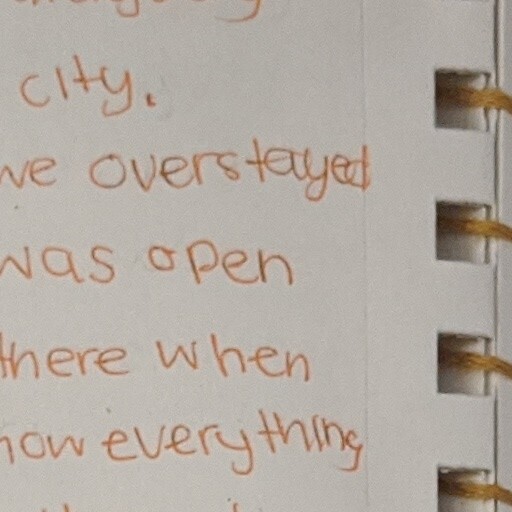 city.
we overstayed
was open
there when
how everything